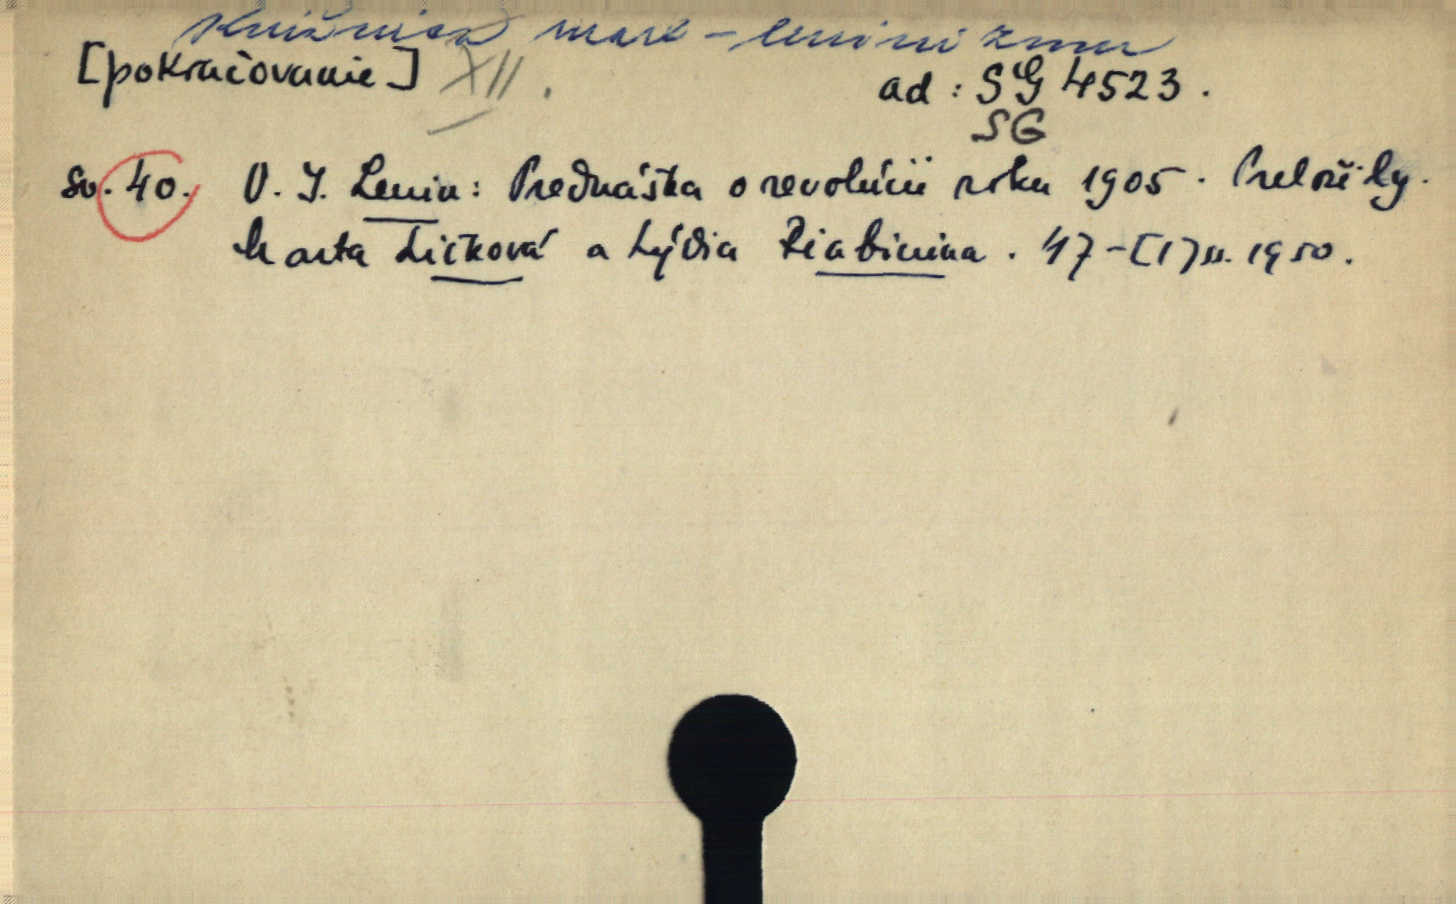 Knižnica marx-leninizmu
[pokračovanie] XII.
ad: SG 4523.
SG
sv. 40. V. I. Lenin: Prednáška o revolúcii roku 1905. Preložily
Marta Ličková a Lýdia Riabinina. 47-[1] s. 1950.